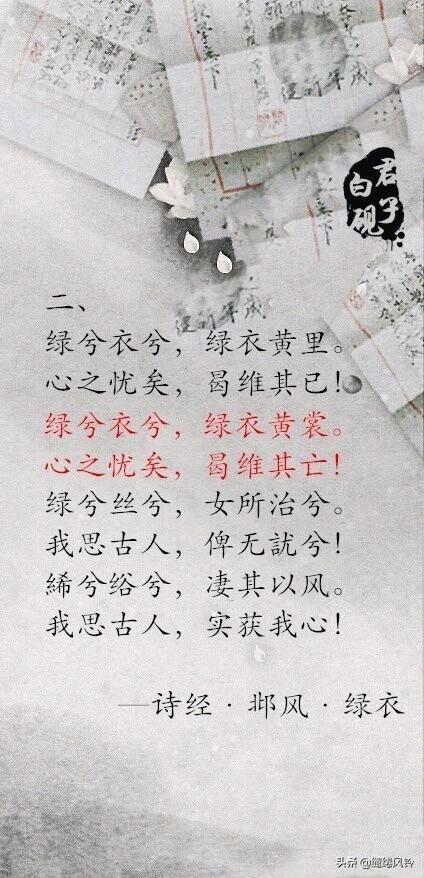 君子
白砚
二、
绿兮衣兮，绿衣黄里。
心之忧矣，曷维其已！
绿兮衣兮，绿衣黄裳。
心之忧矣，曷维其亡！
绿兮丝兮，女所治兮。
我思古人，俾无訧兮！
絺兮绤兮，凄其以风。
我思古人，实获我心！
—诗经·邶风·绿衣
头条 @缱绻风铃